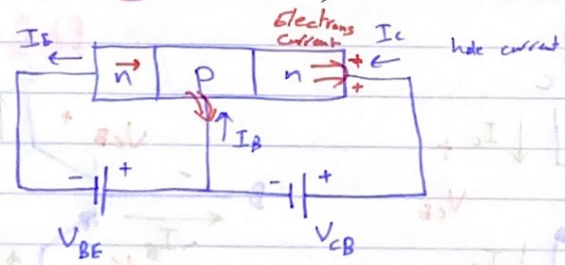 Electrons
current
I_E
I_C
hole current
n p n + +
I_B
- + - +
V_BE V_CB